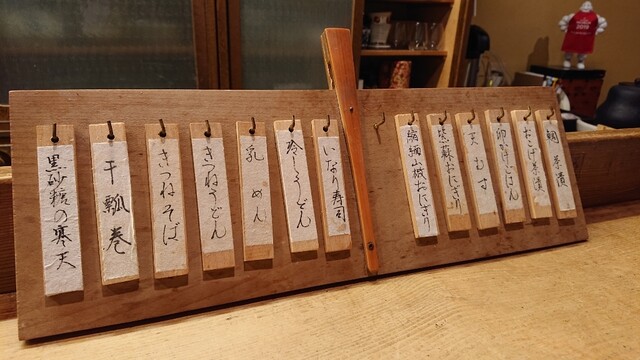 鯛茶漬
おこげ茶漬
卵かけごはん
天むす
紫蘇おにぎり
縮緬山椒おにぎり
いなり寿司
冷しうどん
乳めん
きつねうどん
きつねそば
干瓢巻
黒砂糖の寒天